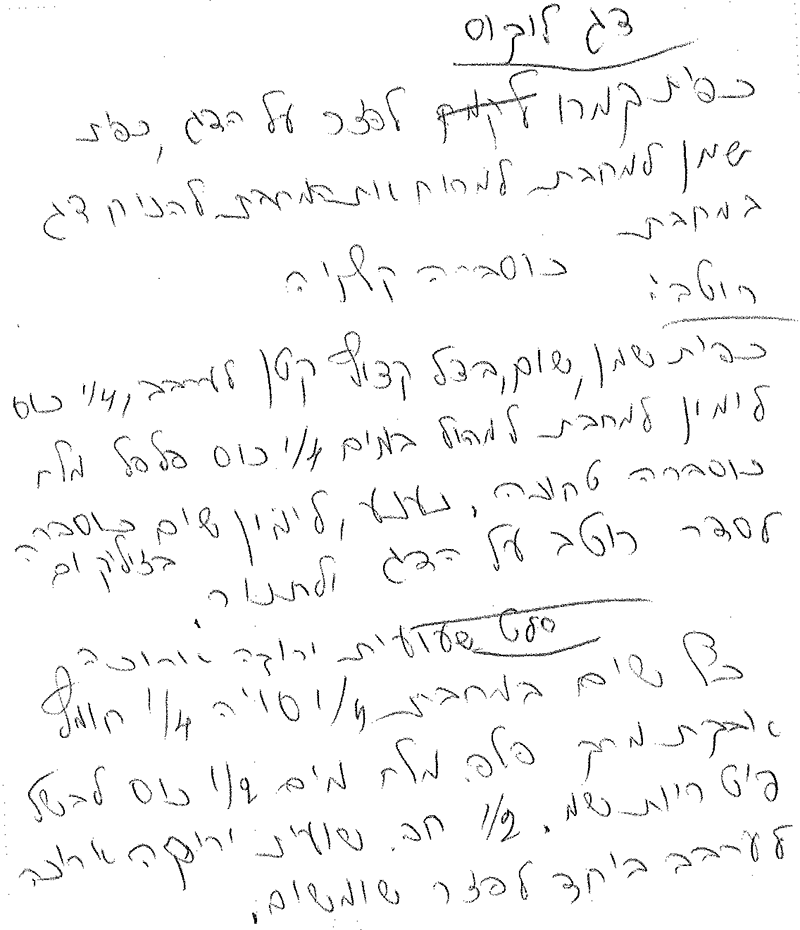 דג לוקוס
כפית קמרו לפזר על הדג, כפית
שמן למחבת למרוח את המחבת להניח דג
במחבת
כוסברה קצוצה
רוטב:
כפית שמן, שום, בצל קצוץ קטן לערבב, 1/4 כוס
לימין למחבת למהול במים 1/4 כוס פלפל מלח
כוסברה טחונה, נענע, לימין שים כוסברה
בזיליקום
לסדר רוטב על הדג ולתנור
סלט שעועית ירוקה ארוכה
בצל שים במחבת 1/4 סויה 1/4 חומץ
אבקת מרק פלפ. מלח מים 1/2 כוס לבשל
פיטריות שמ. 1/2 חב. שועית ירוקה ארוכה
לערבב ביחד לפזר שומשום.